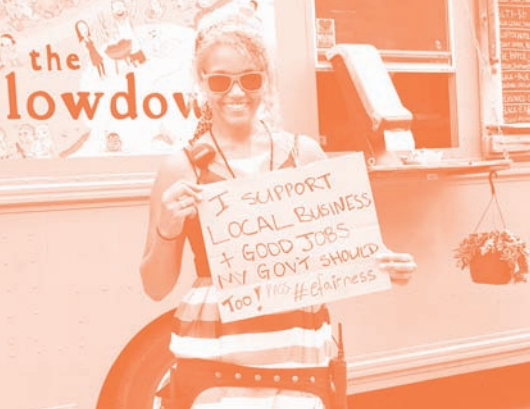 the
lowdow
I SUPPORT
LOCAL BUSINESS
+ GOOD JOBS
MY GOV'T SHOULD
TOO! PASS #efairness